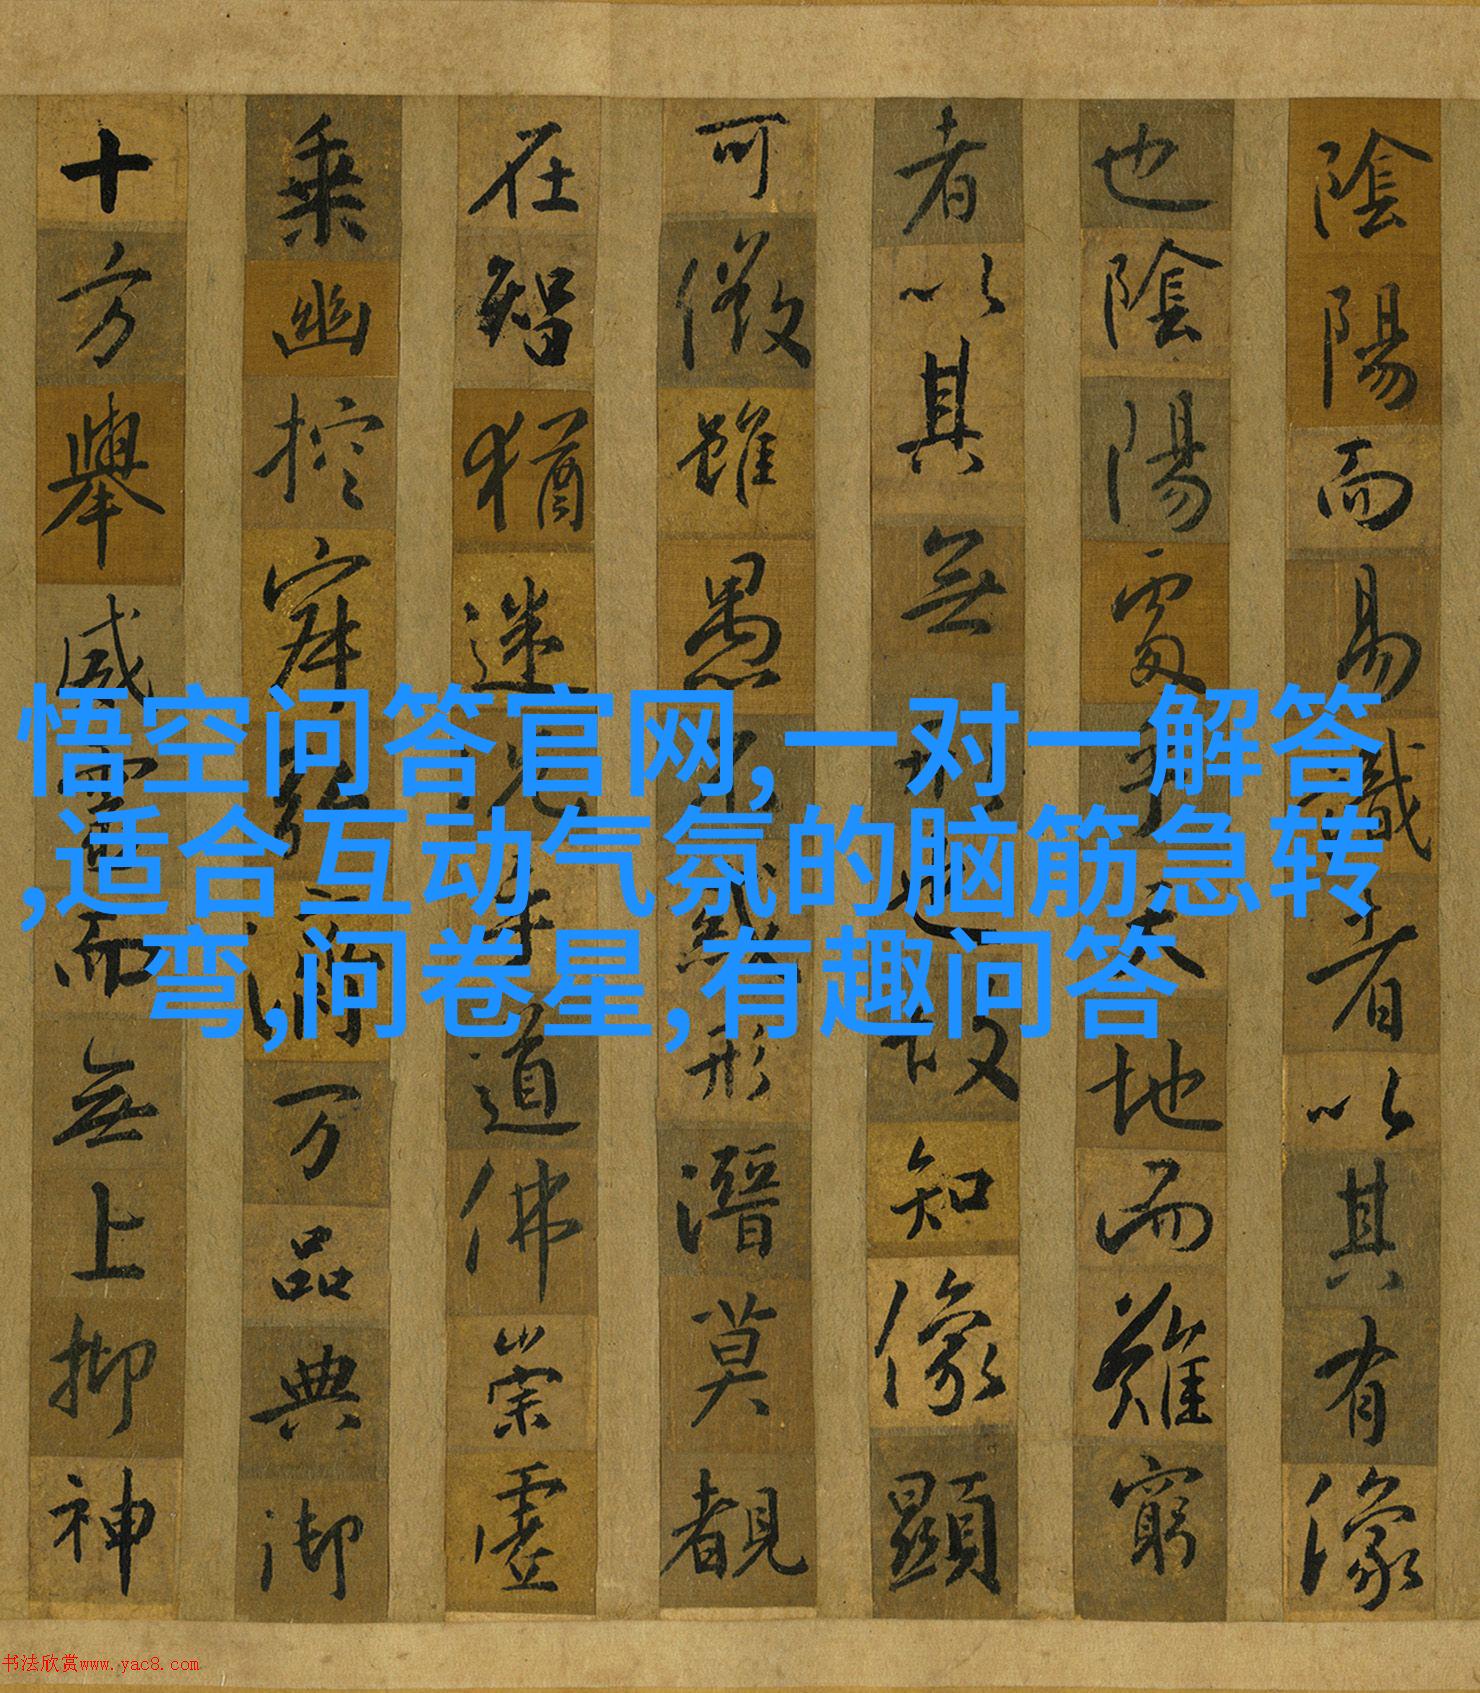 陰陽而易識者以其有像
也陰陽處乎天地而難窮
者以其無形也故知像顯
可徵雖愚不惑形潛莫覩
在智猶迷況乎道佛崇虛
乘幽控寂弘濟万品典御
十方舉威靈而無上抑神
悟空问答官网,一对一解答
,适合互动气氛的脑筋急转
弯,问卷星,有趣问答
书法欣赏www.yac8.com